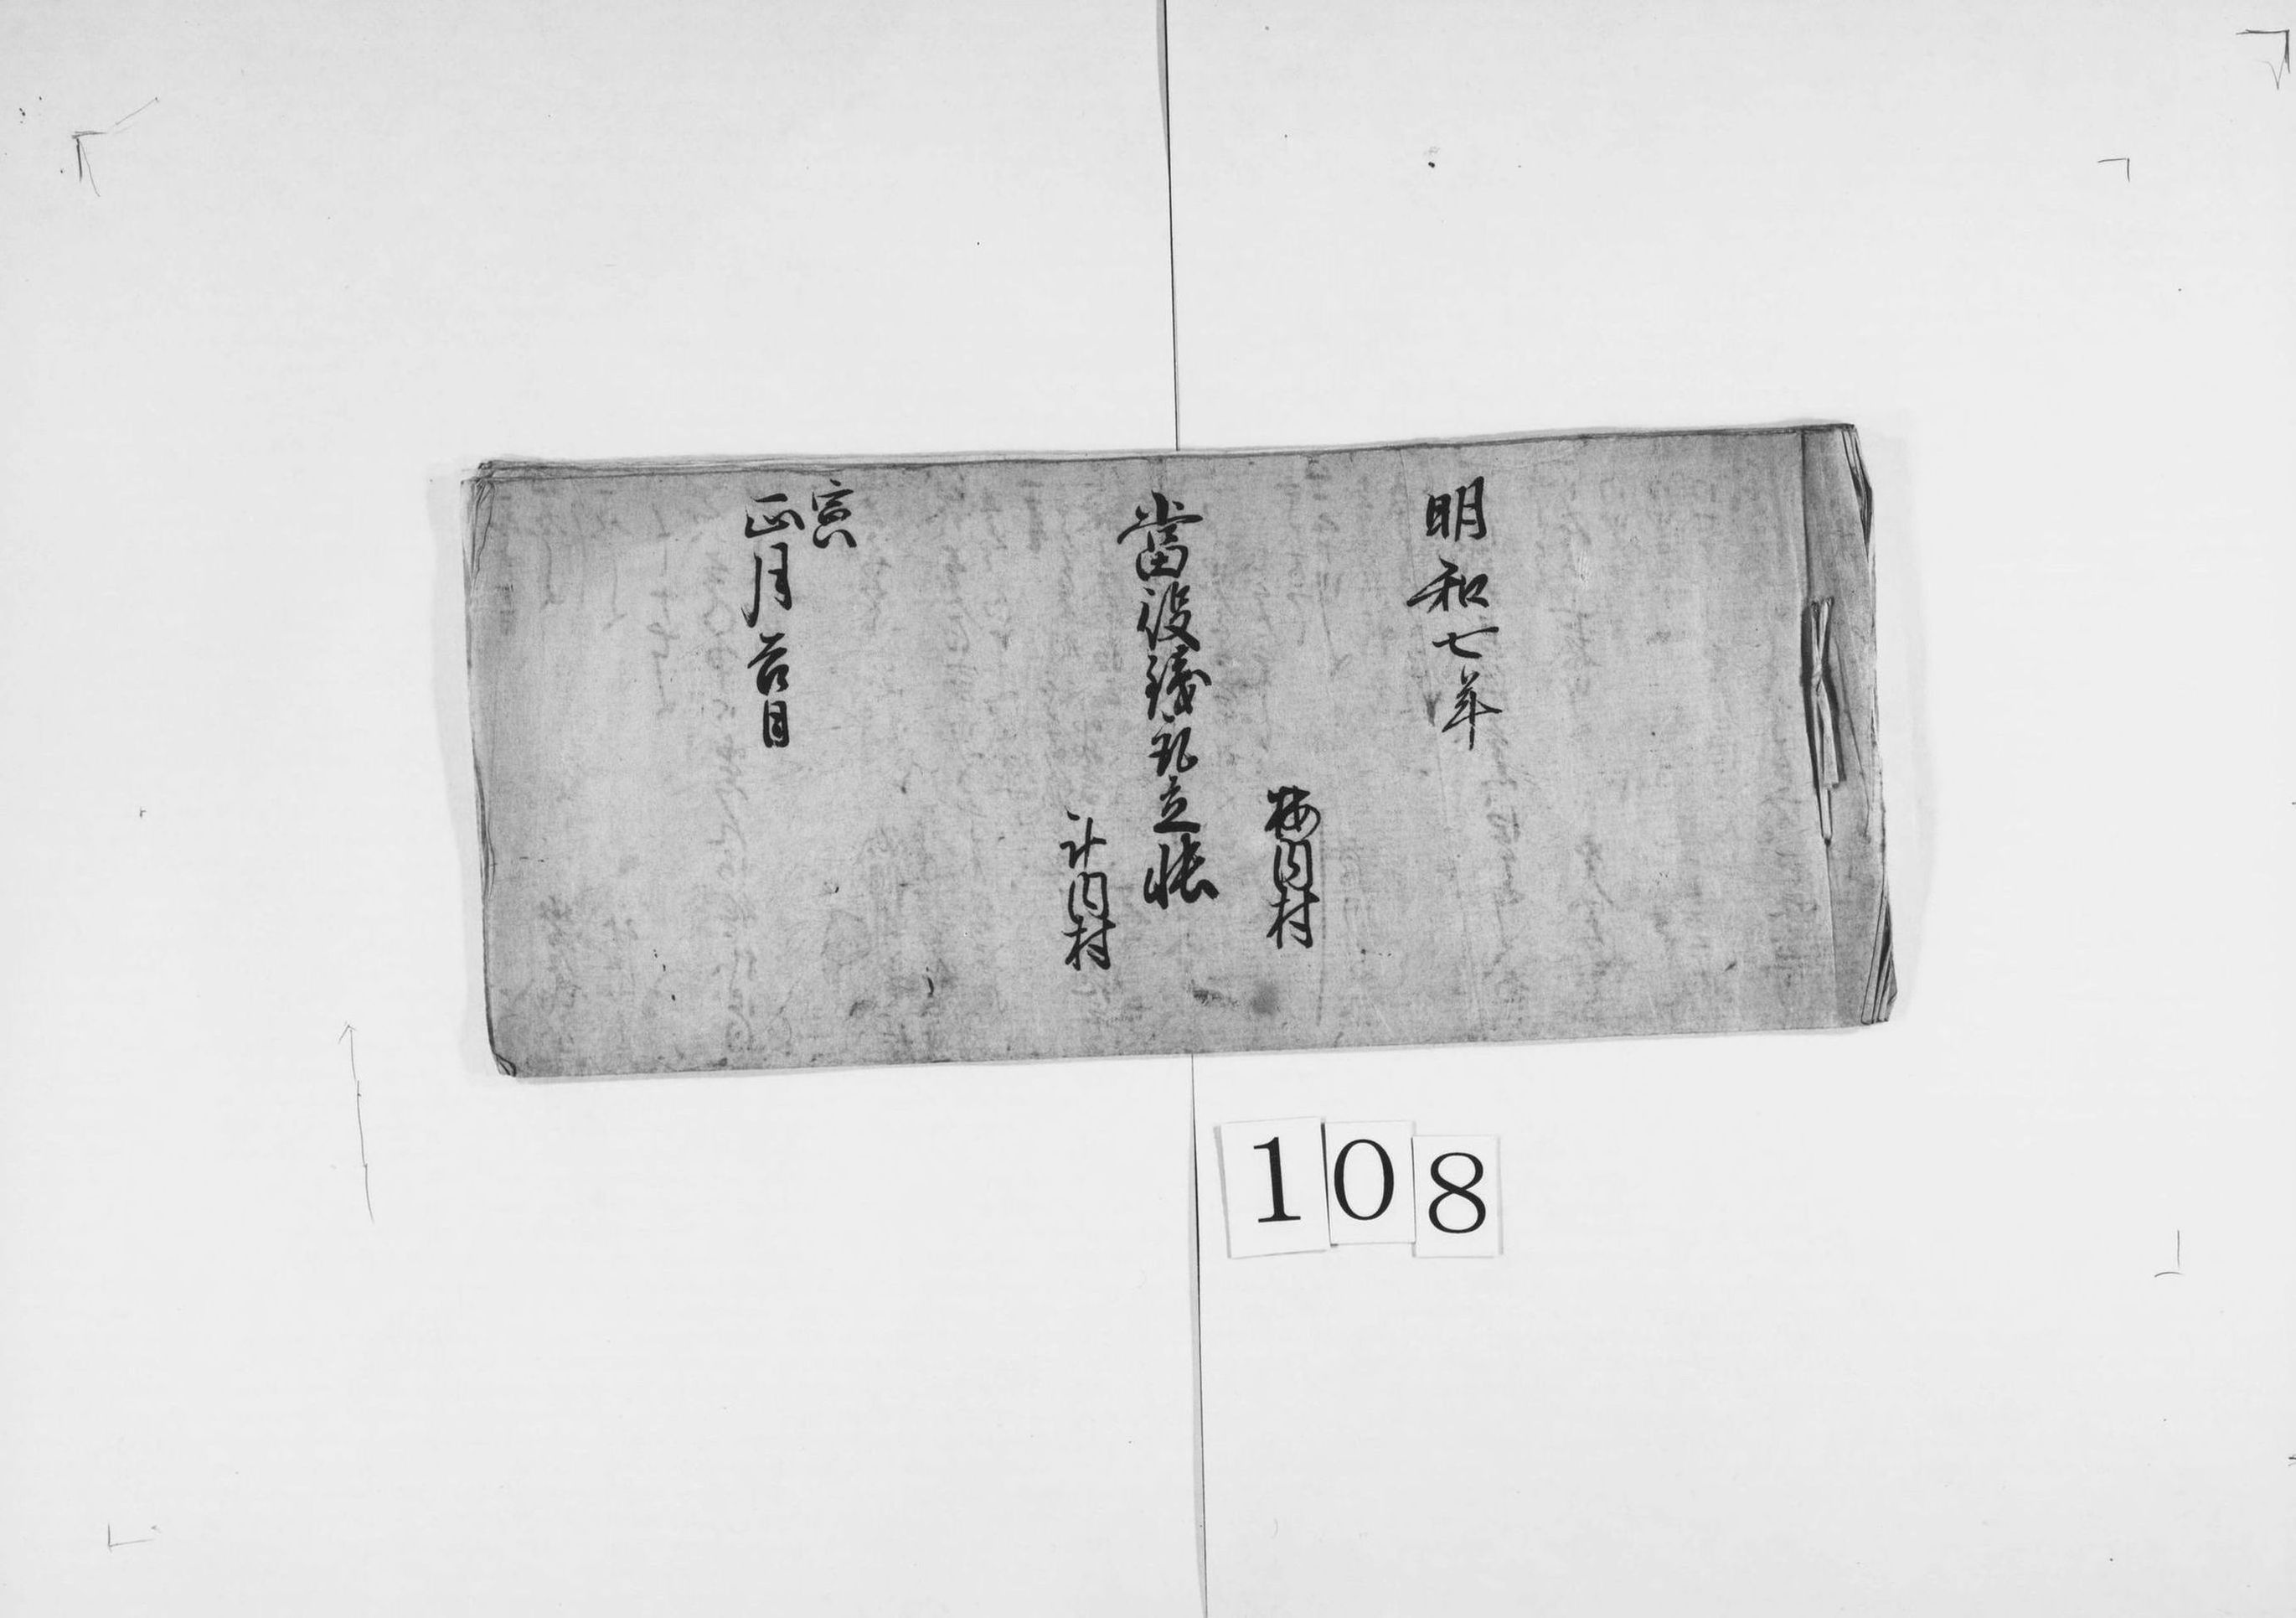 明和七年
梅内村
當役錢取立帳
計内村
寅
正月吉日
108